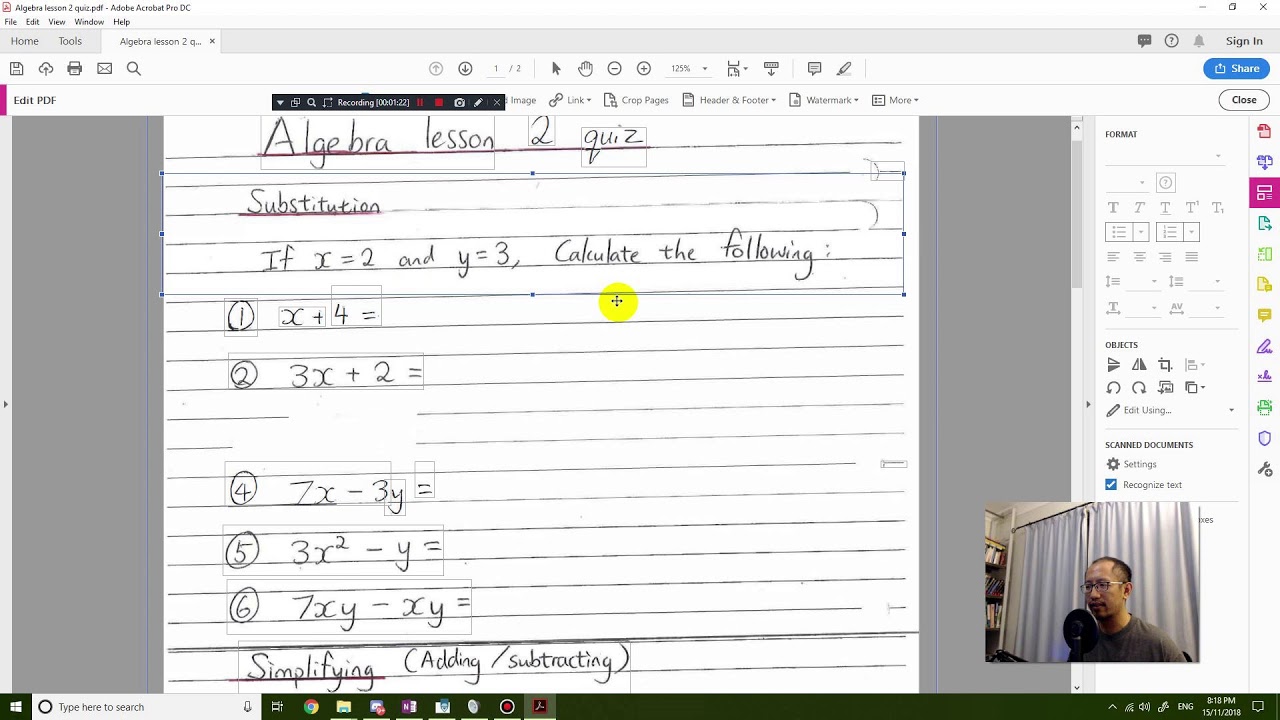 Algebra lesson 2 quiz.pdf - Adobe Acrobat Pro DC
File Edit View Window Help
Home Tools Algebra lesson 2 q... × Sign In
1 / 2 125% Share
Edit PDF Recording [00:01:22] d Image Link Crop Pages Header & Footer Watermark More Close
Algebra lesson 2 quiz
Substitution
If x = 2 and y = 3, Calculate the following:
① x + 4 =
② 3x + 2 =
④ 7x - 3y =
⑤ 3x² - y =
⑥ 7xy - xy =
Simplifying (Adding/subtracting)
FORMAT
OBJECTS
Edit Using...
SCANNED DOCUMENTS
Settings
Recognize text
oxes
Type here to search
8:18 PM
15/11/2018